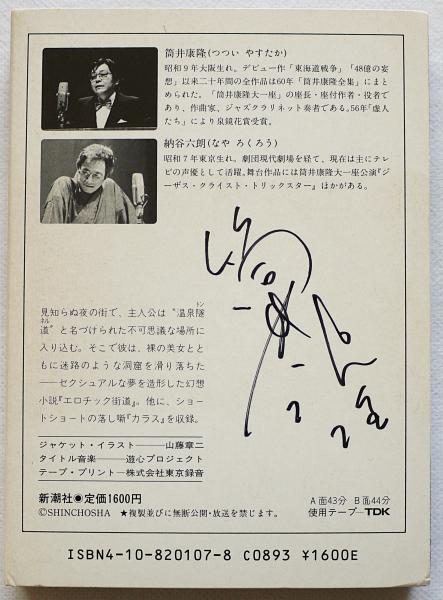 筒井康隆(つつい やすたか)
昭和9年大阪生れ。デビュー作「東海道戦争」「48億の妄
想」以来二十年間の全作品は60年「筒井康隆全集」にまと
められた。「筒井康隆大一座」の座長・座付作者・役者で
あり、作曲家、ジャズクラリネット奏者である。56年「虚人
たち」により泉鏡花賞受賞。
納谷六朗(なや ろくろう)
昭和7年東京生れ。劇団現代劇場を経て、現在は主にテレ
ビの声優として活躍。舞台作品には筒井康隆大一座公演『ジ
ーザス・クライスト・トリックスター』ほかがある。
見知らぬ夜の街で、主人公は〝温泉隧
トン
道〟と名づけられた不可思議な場所に
ネル
入り込む。そこで彼は、裸の美女とと
もに迷路のような洞窟を滑り落ちた
──セクシュアルな夢を造形した幻想
小説『エロチック街道』。他に、ショー
トショートの落し噺『カラス』を収録。
ジャケット・イラスト──山藤章二
タイトル音楽──遊心プロジェクト
テープ・プリント─株式会社東京録音
新潮社●定価1600円
©SHINCHOSHA ★複製並びに無断公開・放送を禁じます。
A面43分 B面44分
使用テープ─TDK
ISBN4-10-820107-8 C0893 ¥1600E